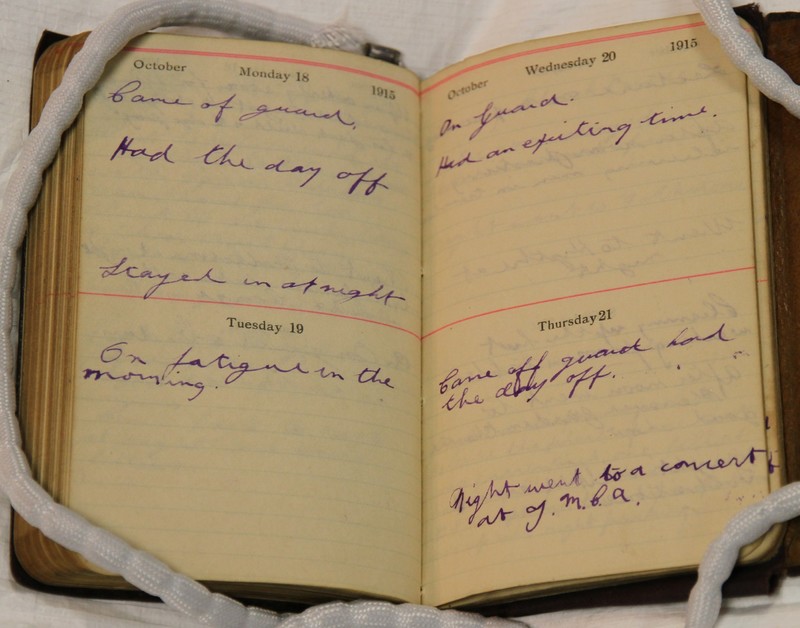 October Monday 18 1915
Came of guard.
Had the day off
Stayed in at night
Tuesday 19
On fatigue in the
morning.
October Wednesday 20 1915
On Guard.
Had an exiting time.
Thursday 21
Came off guard had
the day off.
Night went to a concert
at Y.M.C.A.